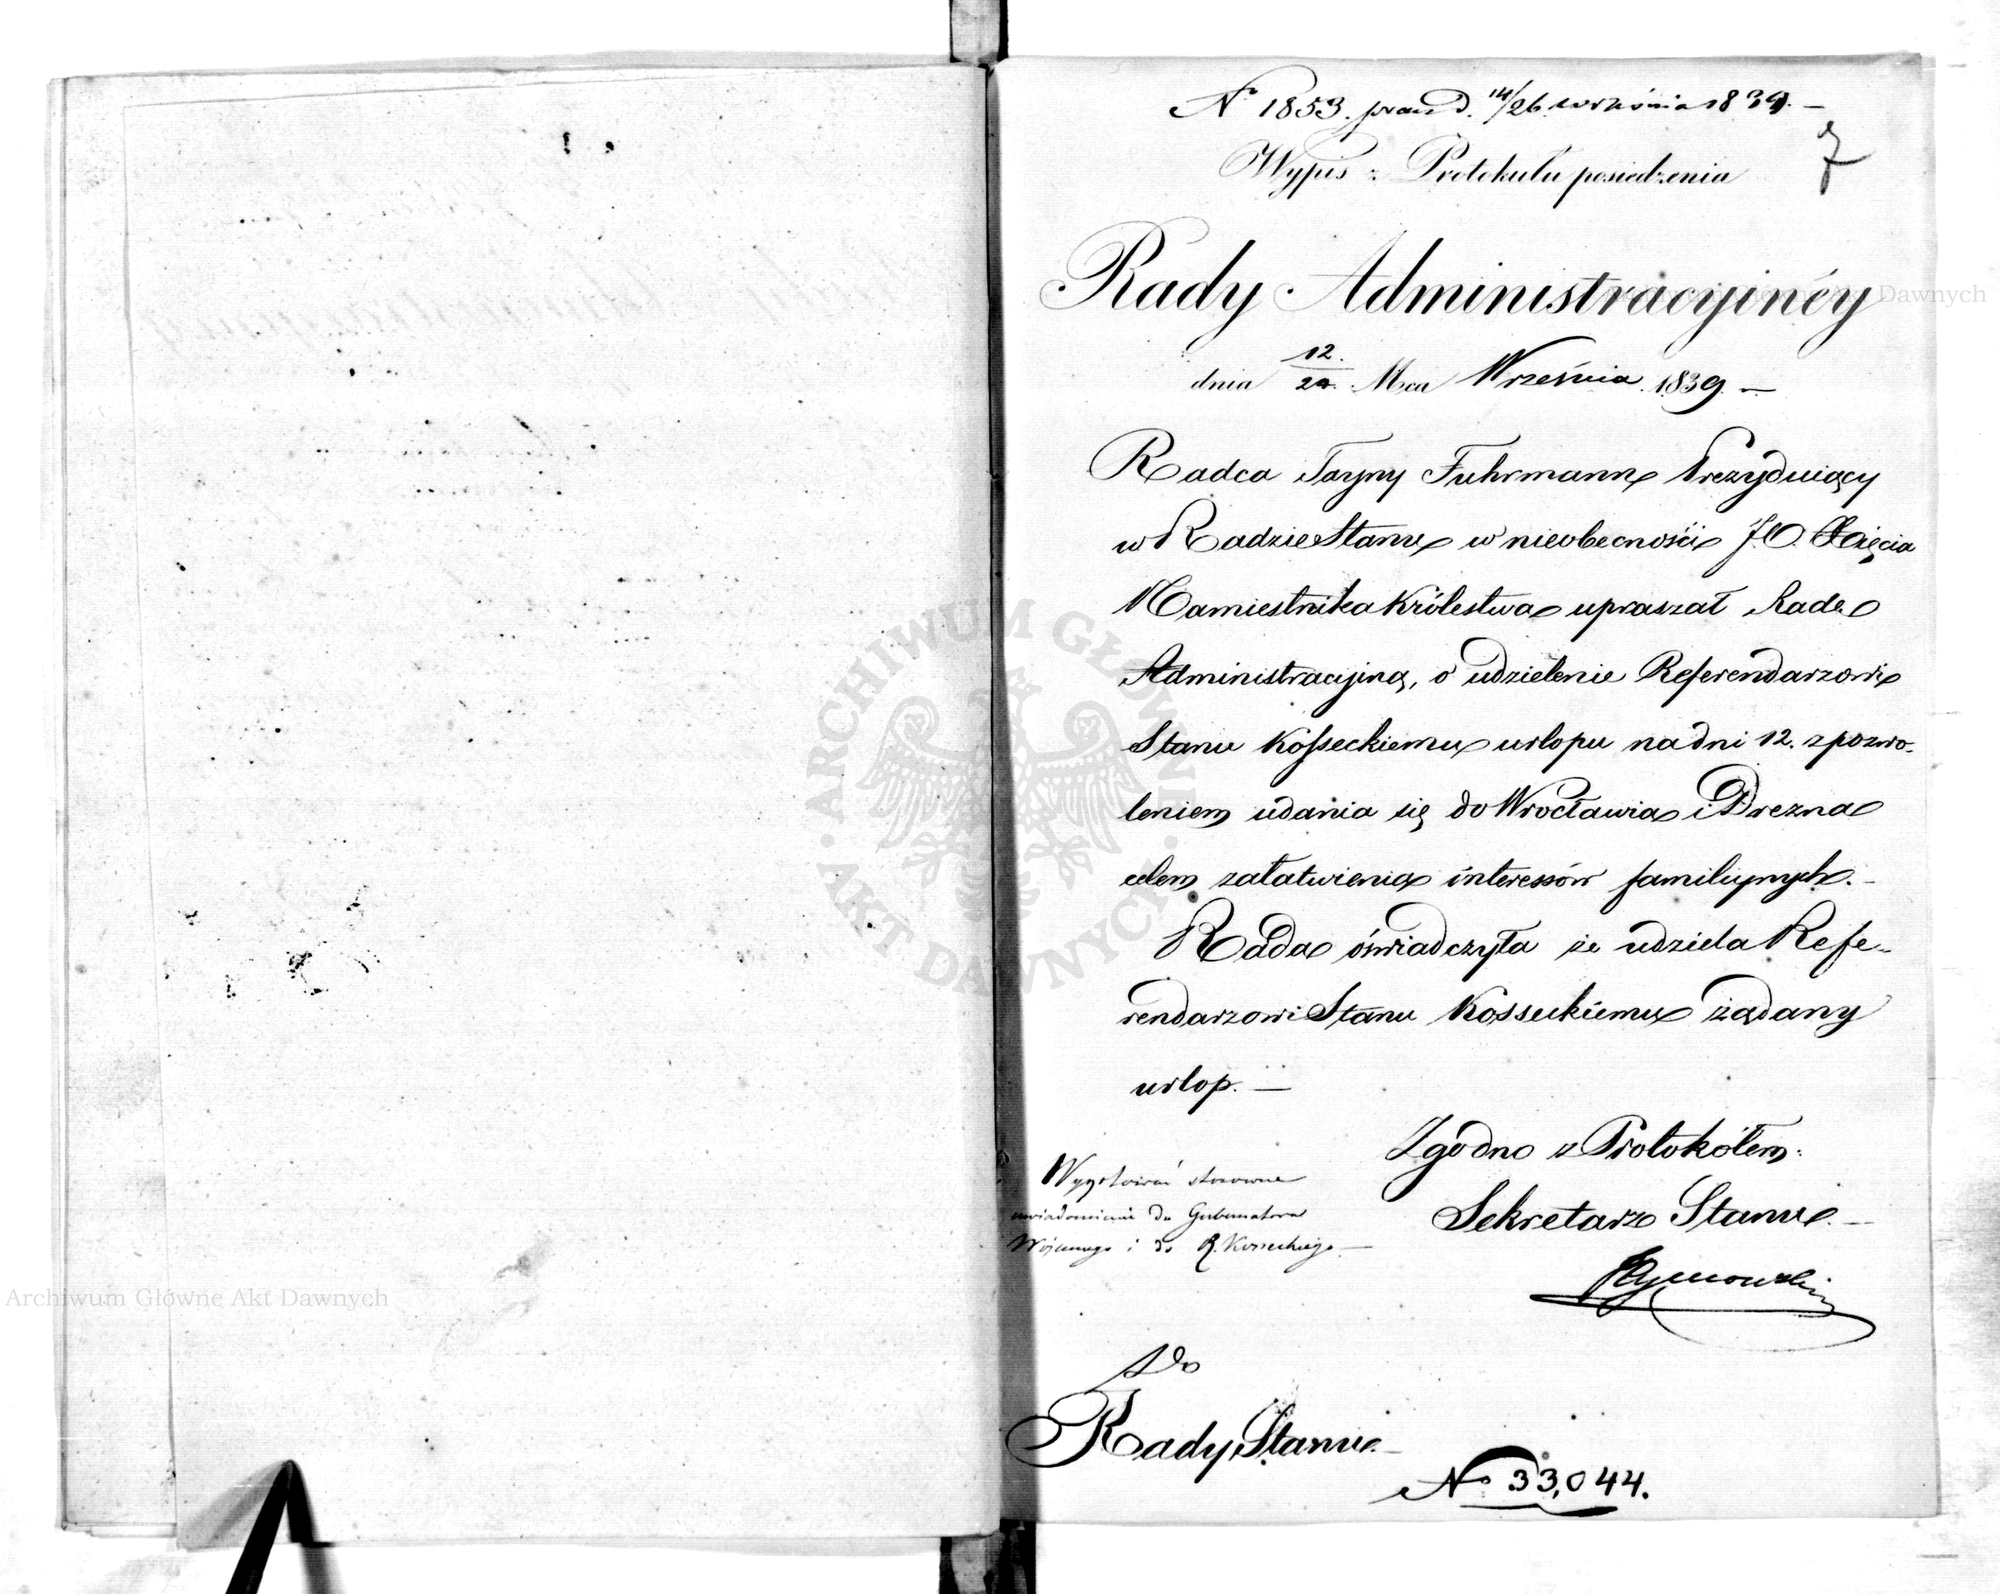 No 1853. praes d. 14/26 września 1839. —
7
Wypis z Protokułu posiedzenia
Rady Administracyinéy
dnia 12/24. Mca Września 1839. —
Radca Tayny Fuhrmann Prezyduiący
w Radzie Stanu w nieobecności J.O. Xięcia
Namiestnika Królestwa upraszał Radę
Administracyiną, o udzielenie Referendarzowi
Stanu Kosseckiemu urlopu na dni 12. z pozwo-
leniem udania się do Wrocławia i Drezna
celem załatwienia interessów familiynych. —
Rada oświadczyła że udziela Refe-
rendarzowi Stanu Kosseckiemu żądany
urlop. —
Zgodno z Protokółem:
Sekretarz Stanu. —
Wygotować stosowne
uwiadomienie do Gubernatora
Wojennego i do R. Kosseckiego. —
Do
Rady Stanu. —
No 33,044.
ARCHIWUM GŁÓWNE AKT DAWNYCH
Archiwum Główne Akt Dawnych
Dawnych